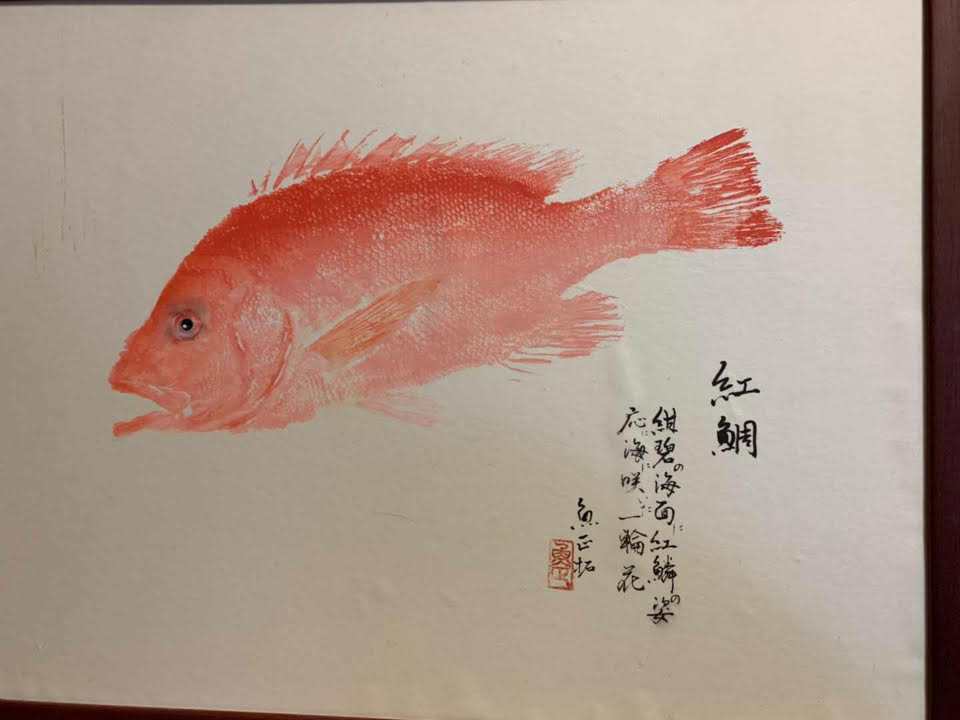 紅鯛
紺碧の海面に紅鱗の姿
応海に咲一輪花
魚正拓
魚正